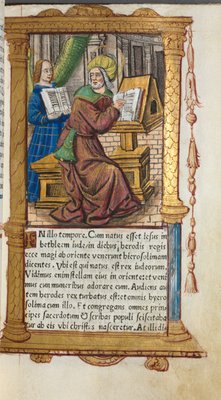 IN illo tempore. Cum natus esset Iesus in
bethleem iude in diebus herodis regis
ecce magi ab oriente venerunt hierosolimam
dicentes. Vbi est qui natus est rex iudeorum.
Vidimus enim stellam eius in oriente: et venimus
cum muneribus adorare eum. Audiens au
tem herodes rex turbatus est: et omnis hyero
solima cum illo. Et congregans omnes prin
cipes sacerdotum & scribas populi sciscitaba
tur ab eis vbi christus nasceretur. At illi di